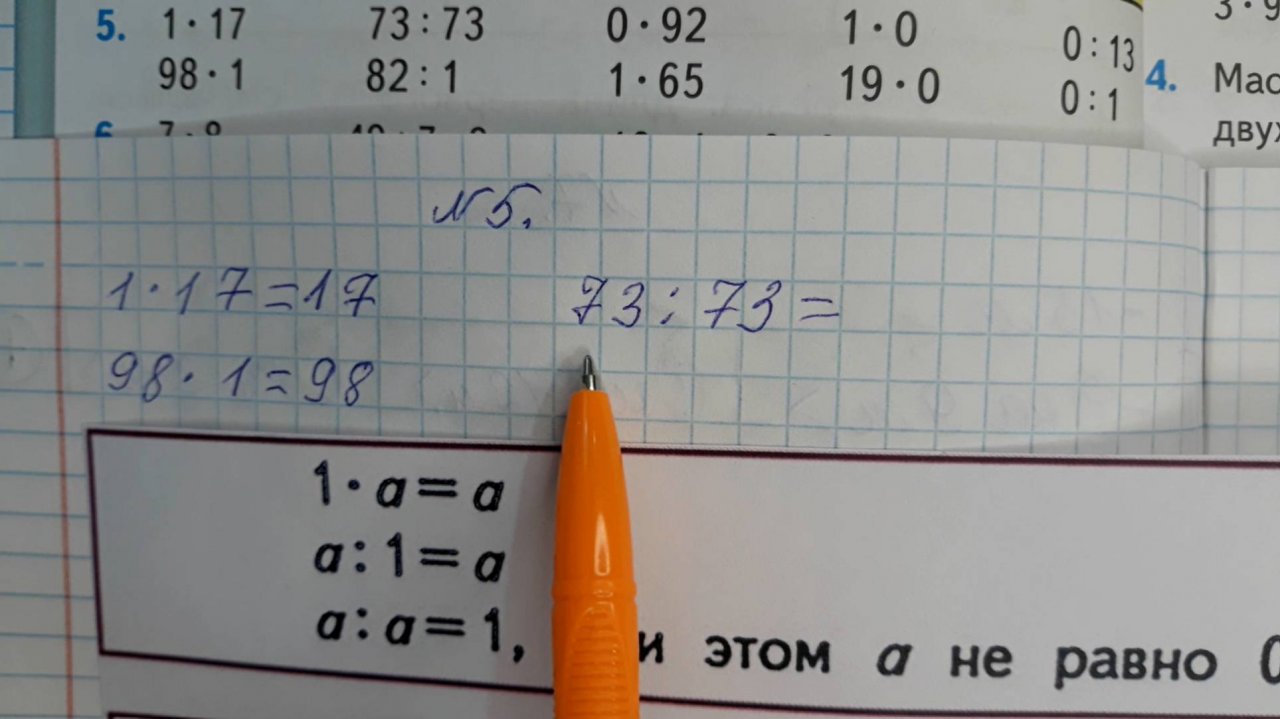 5. 1 · 17 73 : 73 0 · 92 1 · 0 0 : 13
98 · 1 82 : 1 1 · 65 19 · 0 0 : 1
3 · 9
4. Мас
двух
6 7 · 8
№5.
1 · 17 = 17 73 : 73 =
98 · 1 = 98
1 · a = a
a : 1 = a
a : a = 1, и этом a не равно 0